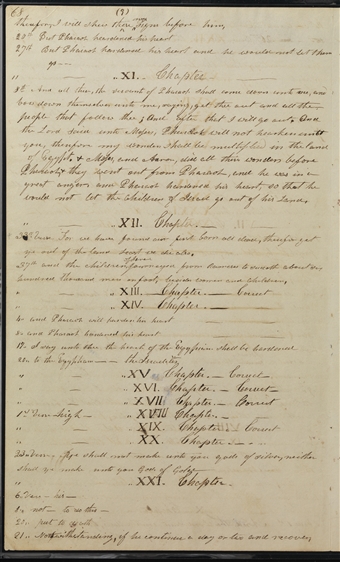 68 (9)
Therefore, I will shew these my signs before him,
20th But Pharaoh hardened his heart
27th But Pharaoh hardened his heart and he would not let them
go —
" — " XI. Chapter —
8th And all these, the servants of Pharaoh shall come down unto me, and
bow down themselves unto me, saying, get thee out and all the
people that follow thee; and after that I will go out. And
the Lord said unto Moses, Pharaoh will not hearken unto
you, therefore my wonders shall be multiplied in the land
of Egypt. & Moses, and Aaron, did all these wonders before
Pharaoh & they went out from Pharaoh, and he was in a
great anger and Pharaoh hardened his heart, so that he
would not let the children of Israel go out of his land.
" — XII. Chapter. —
33 Verse. For we have found our first born all dead, therefore get
ye out of the land lest we die also,
37th and the children from Rameses to Succoth about six
hundred thousand men on foot, besides women and children,
" — " XIII — Chapter — Correct
" — " XIV — Chapter —
4 and Pharaoh will harden his heart
8 and Pharaoh hardened his heart
17. I say unto thee the heart of the Egyptians shall be hardened
20 to the Egyptians — the Israelites,
" — " XV — Chapter — Correct —
" XVI. — Chapter — Correct —
" XVII — Chapter — Correct
1st Verse — high — " XVIII Chapter —
" — " XIX. Chapter — Correct
" — " XX. Chapter —
23 Verse, Ye shall not make unto you gods of silver, neither
shall ye make unto you Gods of Gold —
" — " XXI. Chapter —
6 Verse — his —
8 — not — to
20 — put to death
21 Notwithstanding, if he continue a day or two and recover,